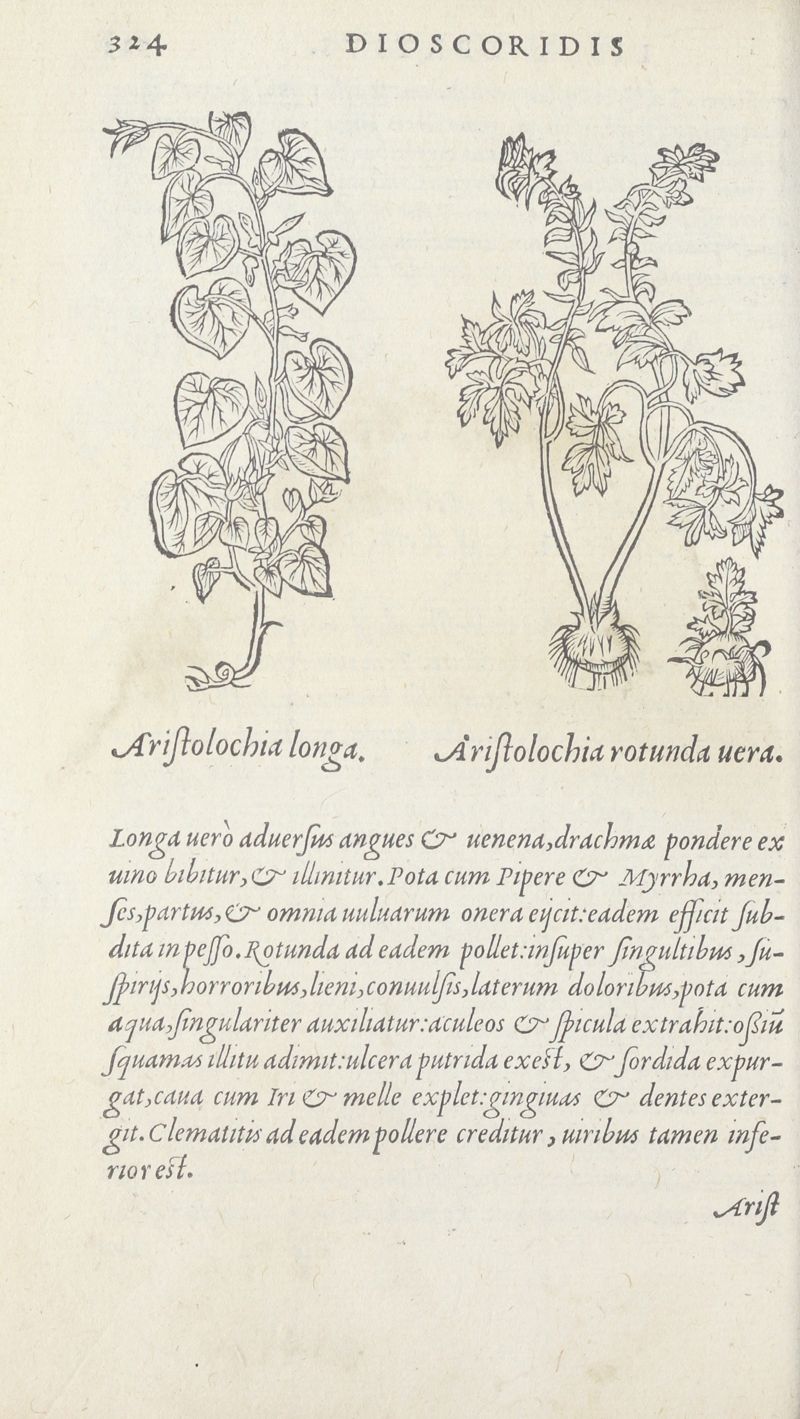 324 DIOSCORIDIS
Aristolochia longa. Aristolochia rotunda uera.
Longa uerò aduersus angues & uenena, drachmæ pondere ex
uino bibitur, & illinitur. Pota cum Pipere & Myrrha, men-
ses, partus, & omnia uuluarum onera eijcit: eadem efficit sub-
dita in pesso. Rotunda ad eadem pollet: insuper singultibus, su-
spirijs, horroribus, lieni, conuulsis, laterum doloribus, pota cum
aqua, singulariter auxiliatur: aculeos & spicula extrahit: ossiũ
squamas illitu adimit: ulcera putrida exest, & sordida expur-
gat, caua cum Iri & melle explet: gingiuas & dentes exter-
git. Clematitis ad eadem pollere creditur, uiribus tamen infe-
rior est.
Arist